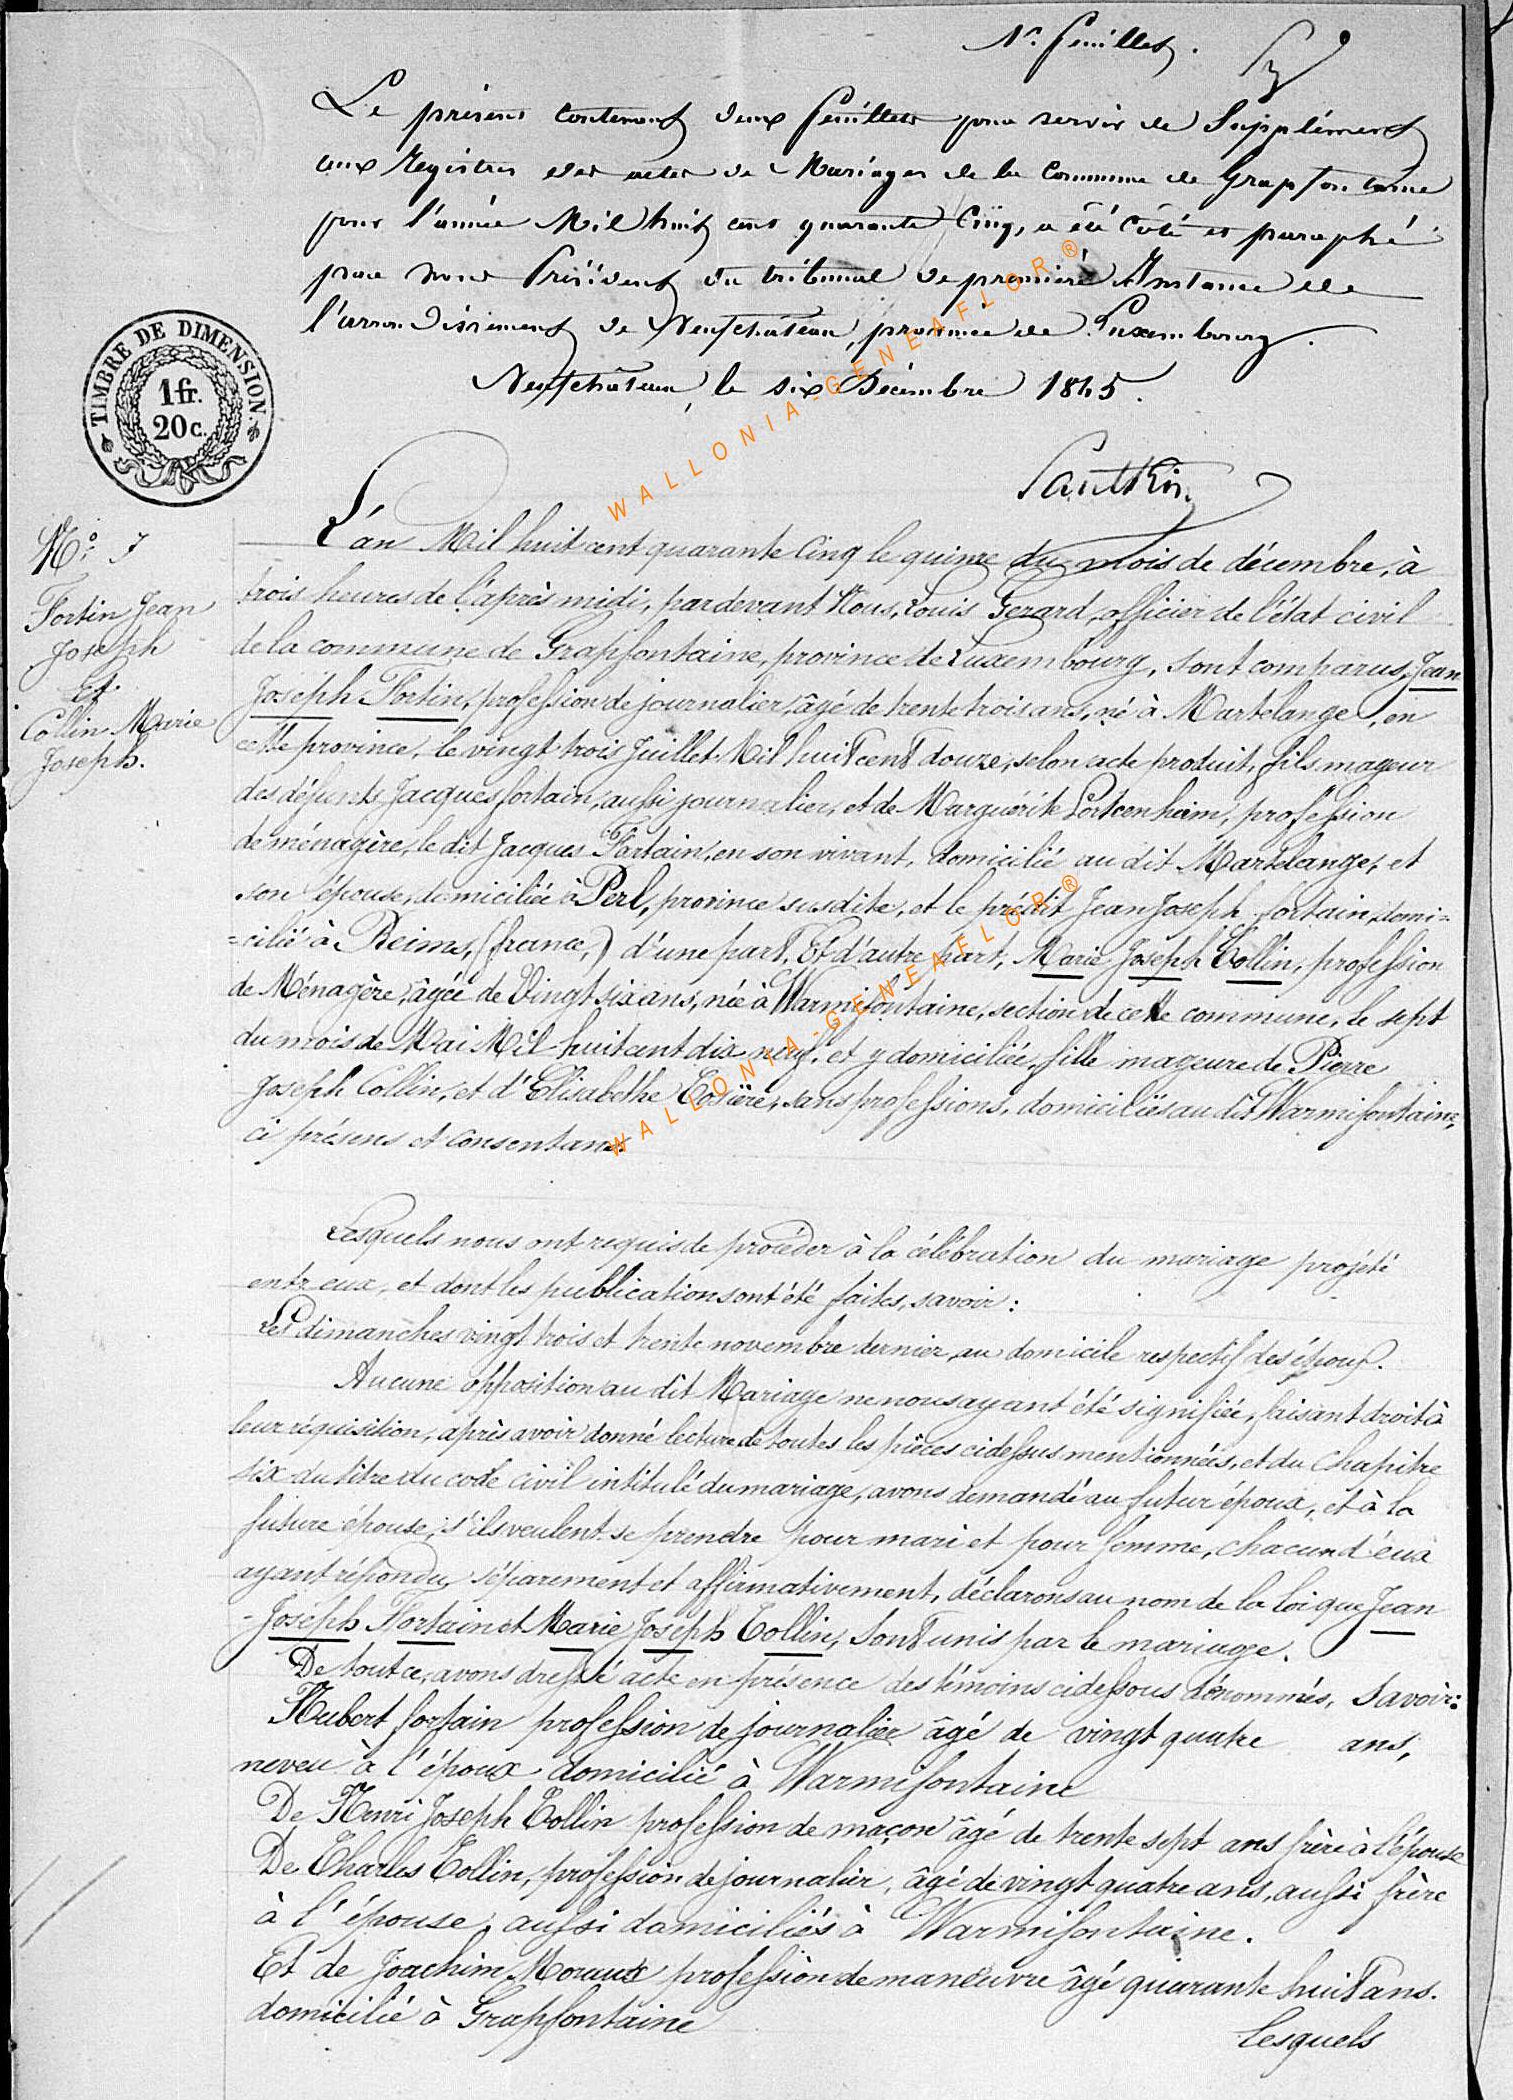 1er feuillet.
Le présent contenant deux feuillets pour servir de Supplément
aux Registres des actes de Mariages de la Commune de Grapfontaine
pour l'année Mil huit cent quarante Cinq, a été Côté et paraphé
par nous Président du tribunal de première Instance de
l'arrondissement de Neufchâteau, province de Luxembourg.
Neufchâteau, le six Décembre 1845.
TIMBRE DE DIMENSION.
1 fr.
20 c.
N° 7
Fortin Jean
Joseph
Et
Collin Marie
Joseph.
L'an Mil huit cent quarante Cinq le quinze du mois de décembre, à
trois heures de l'après midi, pardevant Nous, Louis Gerard, officier de l'état civil
de la commune de Grapfontaine, province de Luxembourg, sont comparus, Jean
Joseph Fortin, profession de journalier, âgé de trente trois ans, né à Martelange, en
cette province, le vingt trois Juillet Mil huit cent douze, selon acte produit, fils mageur
des défunts Jacques fortain, aussi journalier, et de Marguérite, profession
de ménagère, le dit Jacques Fortain, en son vivant, domicilié au dit Martelange, et
son épouse, domiciliée à Perl, province susdite, et le prédit Jean Joseph fortain, domi=
=cilié à Reims, (france,) d'une part, Et d'autre part, Marie Joseph Collin, profession
de Ménagère, âgée de Vingt six ans, née à Warmifontaine, section de cette commune, le sept
du mois de Mai Mil huit cent dix neuf, et y domiciliée, fille mageure de Pierre
Joseph Collin, et d'Elisabethe, sans professions, domiciliés au dit Warmifontaine,
ci présens et consentans
Lesquels nous ont requis de procéder à la célébration du mariage projété
entr'eux, et dont les publications ont été faites, savoir:
Les dimanches vingt trois et trente novembre dernier, au domicile respectif des époux.
Aucune opposition au dit Mariage ne nous ayant été signifiée, faisant droit à
leur réquisition, après avoir donné lecture de toutes les pièces cidessus mentionnées, et du Chapitre
six du titre du code civil intitulé du mariage, avons demandé au futur époux, et à la
future épouse, s'ils veulent se prendre pour mari et pour femme, chacun d'eux
ayant répondu, séparement et affirmativement, déclarons au nom de la loi que Jean
-Joseph Fortain et Marie Joseph Collin, Sont unis par le mariage.
De tout ce, avons dressé acte en présence des témoins cidessous dénommés, Savoir:
Hubert fortain profession de journalier âgé de vingt quatre ans,
neveu à l'époux domicilié à Warmifontaine
De Henri Joseph Collin profession de maçon âgé de trente sept ans frère à l'épouse
De Charles Collin, profession de journalier, âgé de vingt quatre ans, aussi frère
à l'épouse, aussi domiciliés à Warmifontaine.
Et de Joachim Moraux profession de maneuvre âgé quarante huit ans.
domicilié à Grapfontaine
Lesquels
WALLONIA-GENEAFLOR®
WALLONIA-GENEAFLOR®